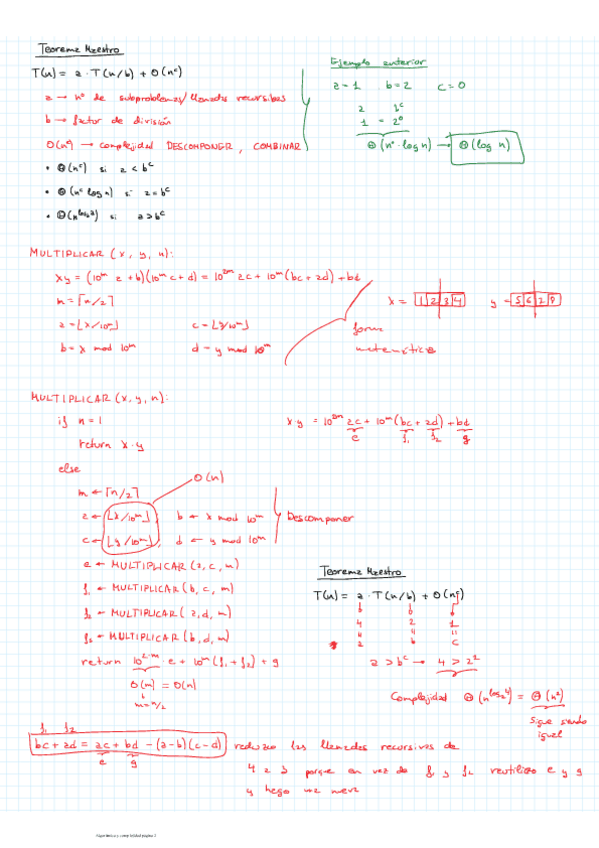 Teorema Maestro
T(n) = a · T(n/b) + O(n^c)
a → nº de subproblemas/llamadas recursivas
b → factor de división
O(n^c) → complejidad DESCOMPONER, COMBINAR
• Θ(n^c) si a < b^c
• Θ(n^c log n) si a = b^c
• Θ(n^(log_b a)) si a > b^c
Ejemplo anterior
a = 1 b = 2 c = 0
a b^c
1 = 2^0
Θ(n^0 · log n) → Θ(log n)
MULTIPLICAR (x, y, n):
xy = (10^m a + b)(10^m c + d) = 10^2m ac + 10^m (bc + ad) + bd
m = ⌈n/2⌉
a = ⌊x/10^m⌋ c = ⌊y/10^m⌋
b = x mod 10^m d = y mod 10^m
x = 1 2 3 4 y = 5 6 7 8
forma
matemática
MULTIPLICAR (x, y, n):
if n = 1
return x · y
else
m ← ⌈n/2⌉
a ← ⌊x/10^m⌋, b ← x mod 10^m
c ← ⌊y/10^m⌋, d ← y mod 10^m
O(n)
Descomponer
e ← MULTIPLICAR (a, c, m)
f₁ ← MULTIPLICAR (b, c, m)
f₂ ← MULTIPLICAR (a, d, m)
MULTIPLICAR (b, d, m)
return 10^2·m · e + 10^m (f₁ + f₂) + g
O(m) = O(n)
m = n/2
x·y = 10^2m ac + 10^m (bc + ad) + bd
e f₁ f₂ g
Teorema Maestro
T(n) = a · T(n/b) + O(n^c)
4 2 1
a b c
a > b^c → 4 > 2^1
Complejidad Θ(n^(log_2 4)) = Θ(n²)
sigue siendo
igual
f₁ f₂
bc + ad = ac + bd − (a−b)(c−d)
e g
reduzco las llamadas recursivas de
4 a 3 porque en vez de f₁ y f₂ reutilizo e y g
y hago una nueva